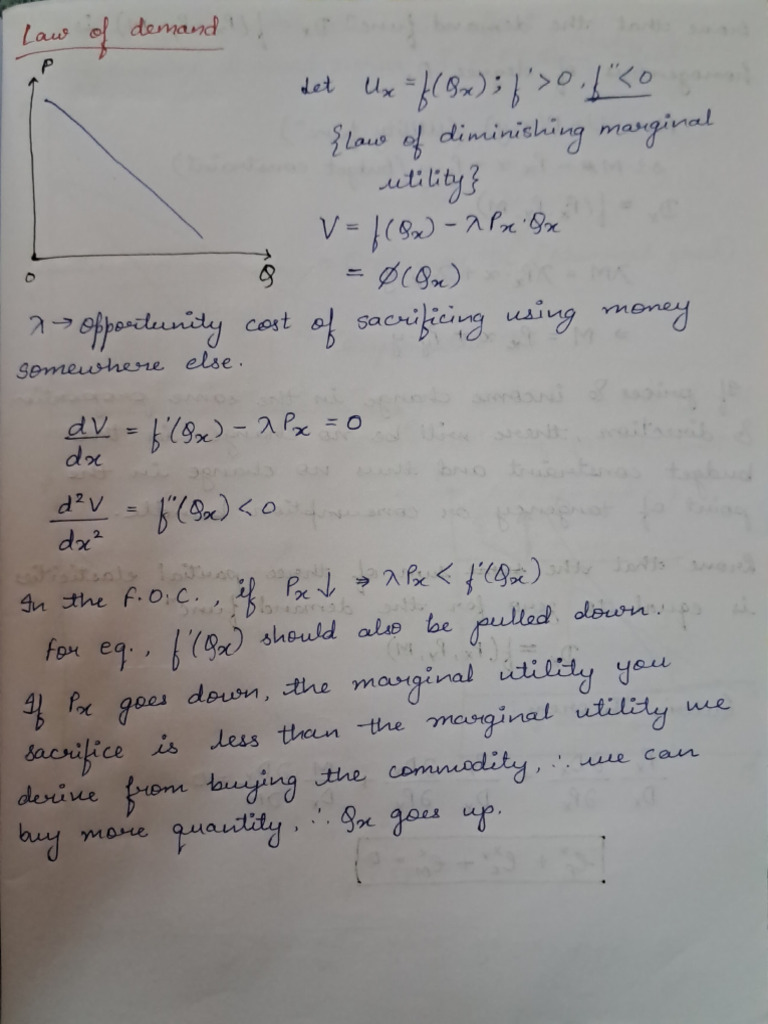 Law of demand
P
O
Q
Let Ux = f(Qx); f' > 0, f'' < 0
{Law of diminishing marginal
utility}
V = f(Qx) - λPx·Qx
= Ø(Qx)
λ → opportunity cost of sacrificing using money
somewhere else.
dV/dx = f'(Qx) - λPx = 0
d²V/dx² = f''(Qx) < 0
In the F.O.C., if Px ↓ ⇒ λPx < f'(Qx)
For eq., f'(Qx) should also be pulled down.
If Px goes down, the marginal utility you
sacrifice is less than the marginal utility we
derive from buying the commodity, ∴ we can
buy more quantity, ∴ Qx goes up.